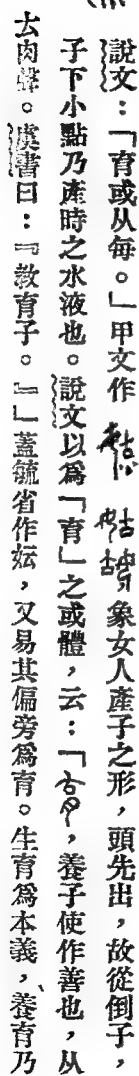 說文：「育或从每。」甲文作 象女人產子之形，頭先出，故從倒子，
子下小點乃產時之水液也。說文以爲「育」之或體，云：「，養子使作善也，从
𠫓肉聲。虞書曰：『教育子。』」蓋毓省作㛎，又易其偏旁爲育。生育爲本義，養育乃